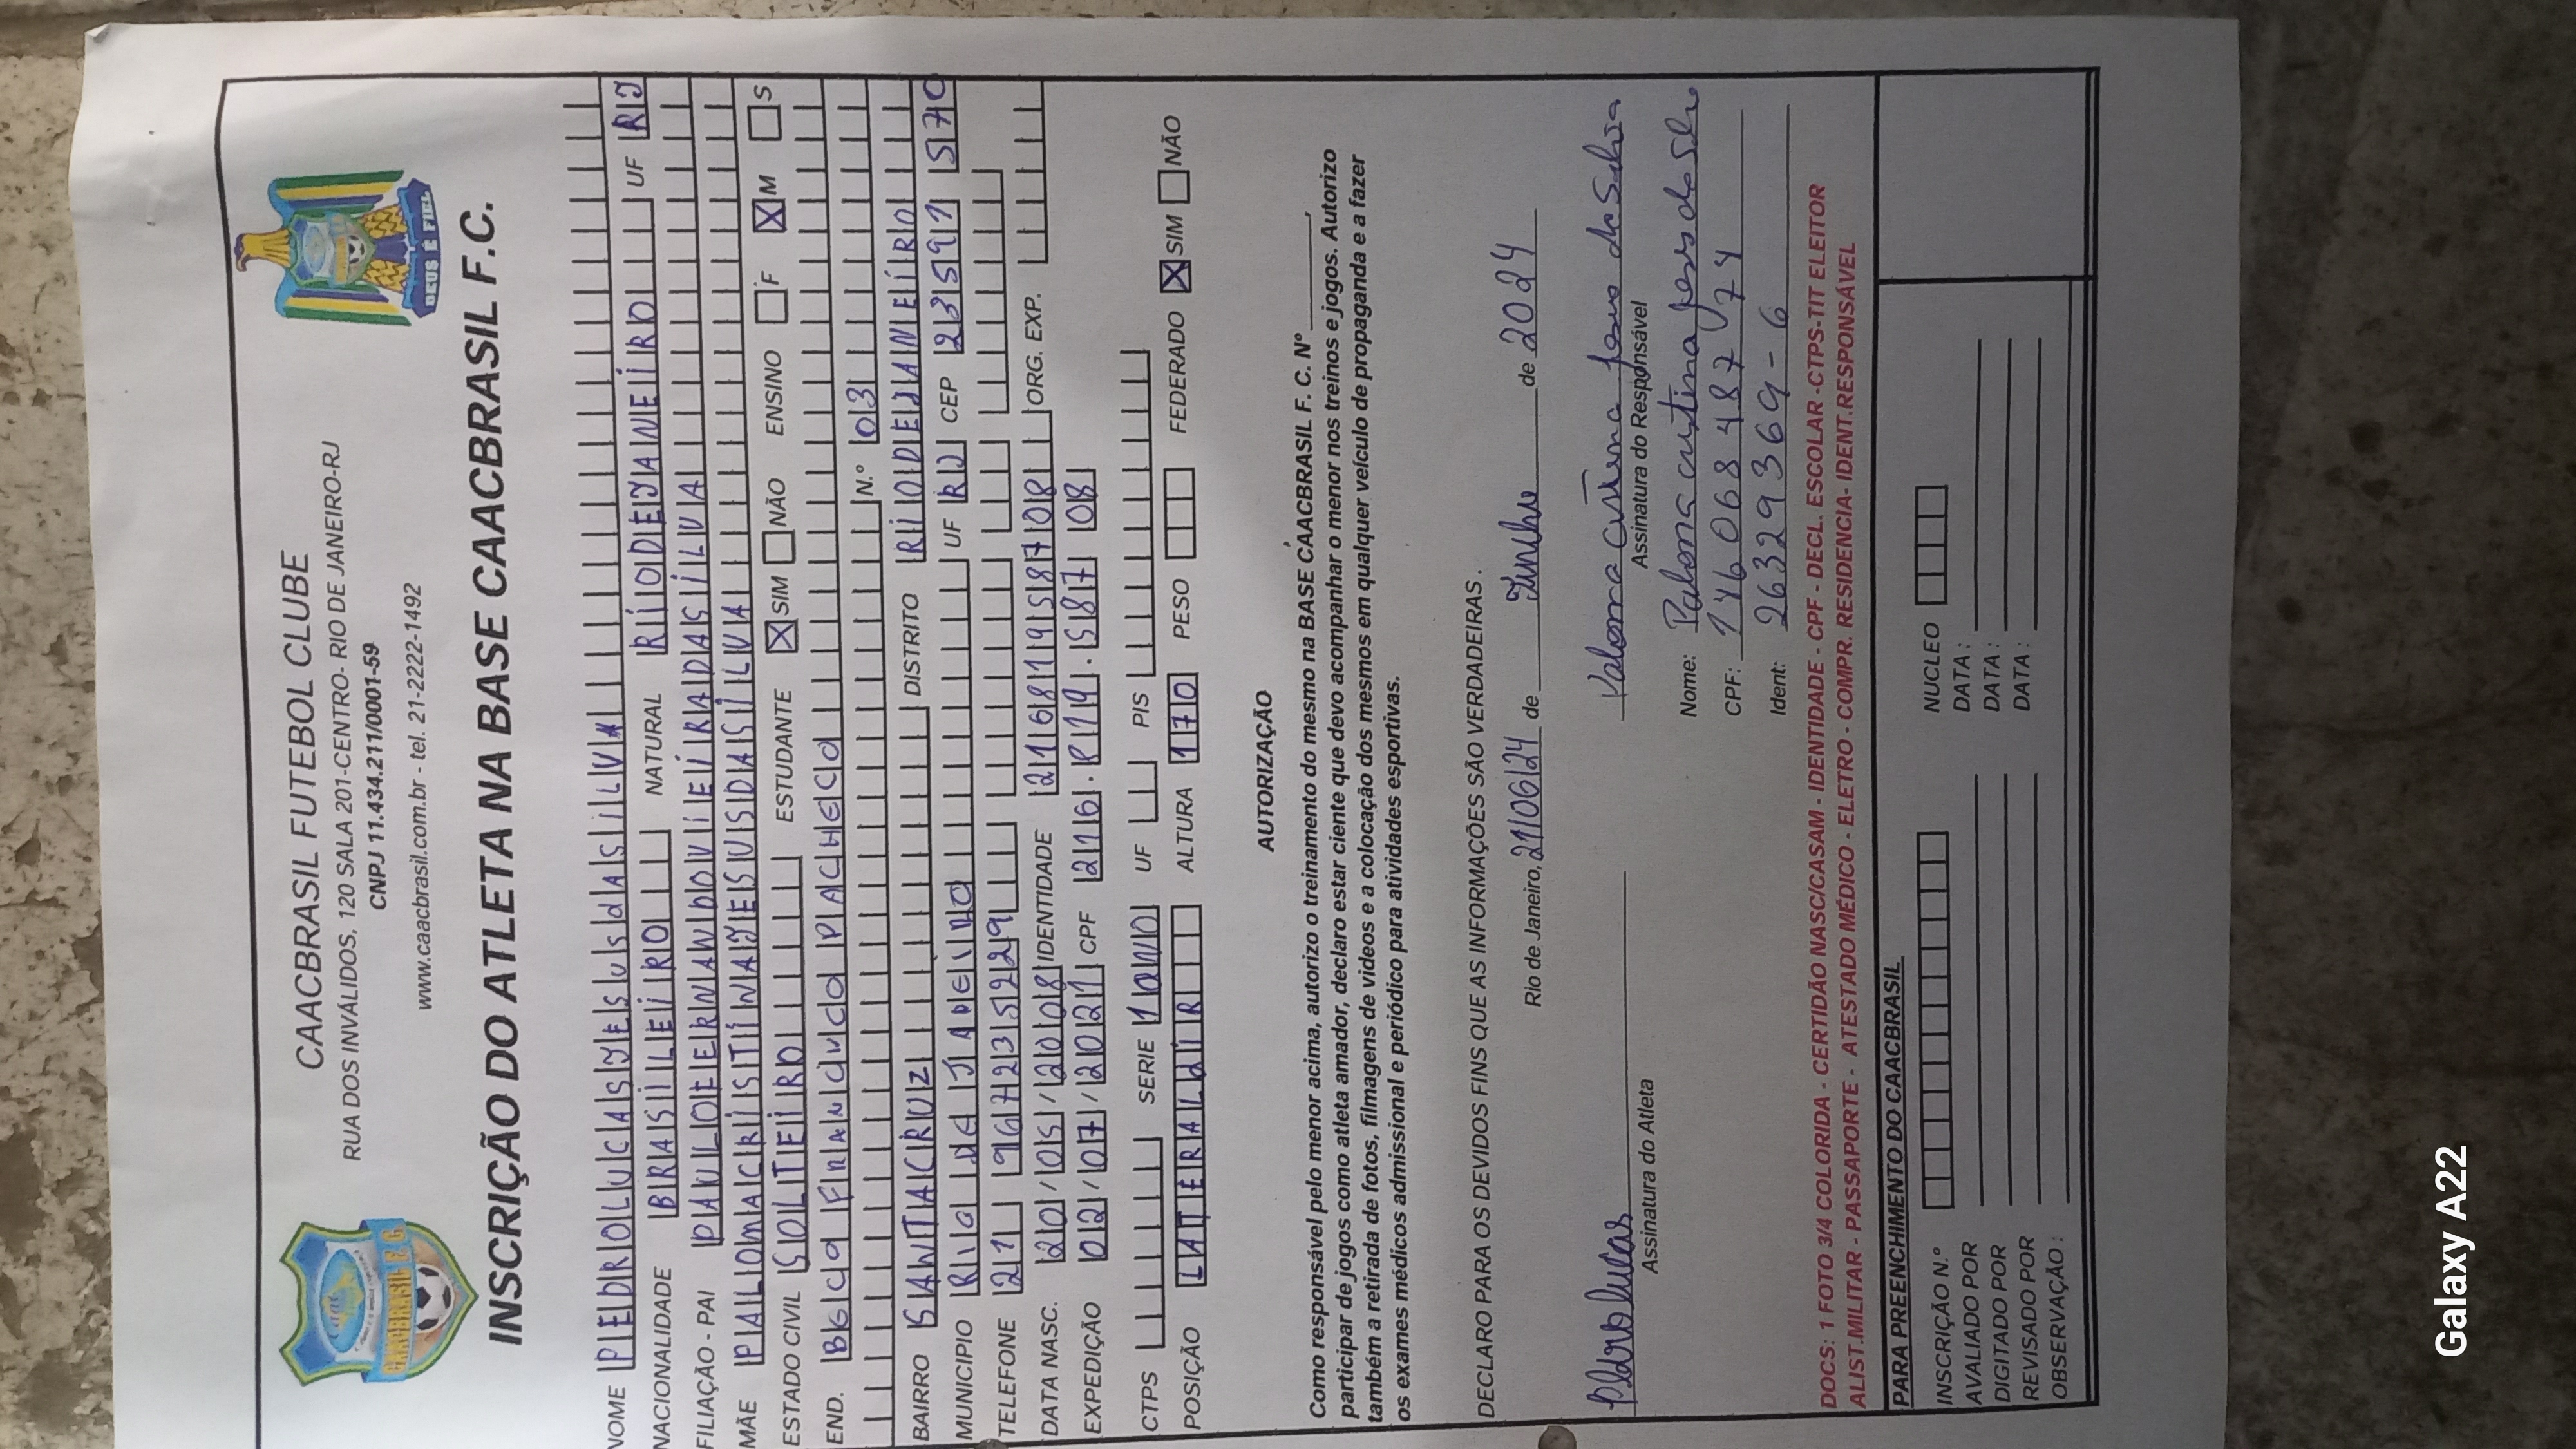 CAACBRASIL FUTEBOL CLUBE
RUA DOS INVALIDOS, 120 SALA 201-CENTRO- RIO DE JANEIRO-RJ
CNPJ 11.434.211/0001-59
www.caacbrasil.com.br - tel. 21-2222-1492
DEUS É FIEL
INSCRIÇÃO DO ATLETA NA BASE CAACBRASIL F.C.
NOME PEDRO LUCAS JESUS dA SiLVA
NACIONALIDADE BRASILEIRO NATURAL RIO DE JANEIRO UF RJ
FILIAÇÃO - PAI PAULO EERNANDO VIEIRA DA SILVA
MÃE PALOMA CRISTINA JESUS DA SILVA
ESTADO CIVIL SOLTEIRO ESTUDANTE X SIM NÃO ENSINO F X M S
END. PACHECO N.º 03
BAIRRO SANTA CRUZ DISTRITO RIO DE JANEIRO
MUNICIPIO RIO DE JANEIRO UF RJ CEP 23591 570
TELEFONE 21 967235229
DATA NASC. 20/05/2008 IDENTIDADE 21681958708 ORG. EXP.
EXPEDIÇÃO 02/07/2021 CPF 587 08
CTPS SERIE 1 ANO UF PIS
POSIÇÃO LATERAL dIR ALTURA 170 PESO FEDERADO X SIM NÃO
AUTORIZAÇÃO
Como responsável pelo menor acima, autorizo o treinamento do mesmo na BASE CAACBRASIL F. C. Nº ________,
participar de jogos como atleta amador, declaro estar ciente que devo acompanhar o menor nos treinos e jogos. Autorizo
também a retirada de fotos, filmagens de videos e a colocação dos mesmos em qualquer veículo de propaganda e a fazer
os exames médicos admissional e periódico para atividades esportivas.
DECLARO PARA OS DEVIDOS FINS QUE AS INFORMAÇÕES SÃO VERDADEIRAS.
Rio de Janeiro, 21/06/24 de Junho de 2024
Pedro Lucas Paloma Cristina Jesus da Silva
Assinatura do Atleta Assinatura do Responsável
Nome: Paloma cristina Jesus da Silva
CPF: 146 068 487 74
Ident: 26329369-6
DOCS: 1 FOTO 3/4 COLORIDA - CERTIDÃO NASC/CASAM - IDENTIDADE - CPF - DECL. ESCOLAR -CTPS-TIT ELEITOR
ALIST.MILITAR - PASSAPORTE - ATESTADO MÉDICO - ELETRO - COMPR. RESIDENCIA- IDENT.RESPONSÁVEL
PARA PREENCHIMENTO DO CAACBRASIL
INSCRIÇÃO N.º NUCLEO
AVALIADO POR DATA:
DIGITADO POR DATA:
REVISADO POR DATA:
OBSERVAÇÃO:
Galaxy A22